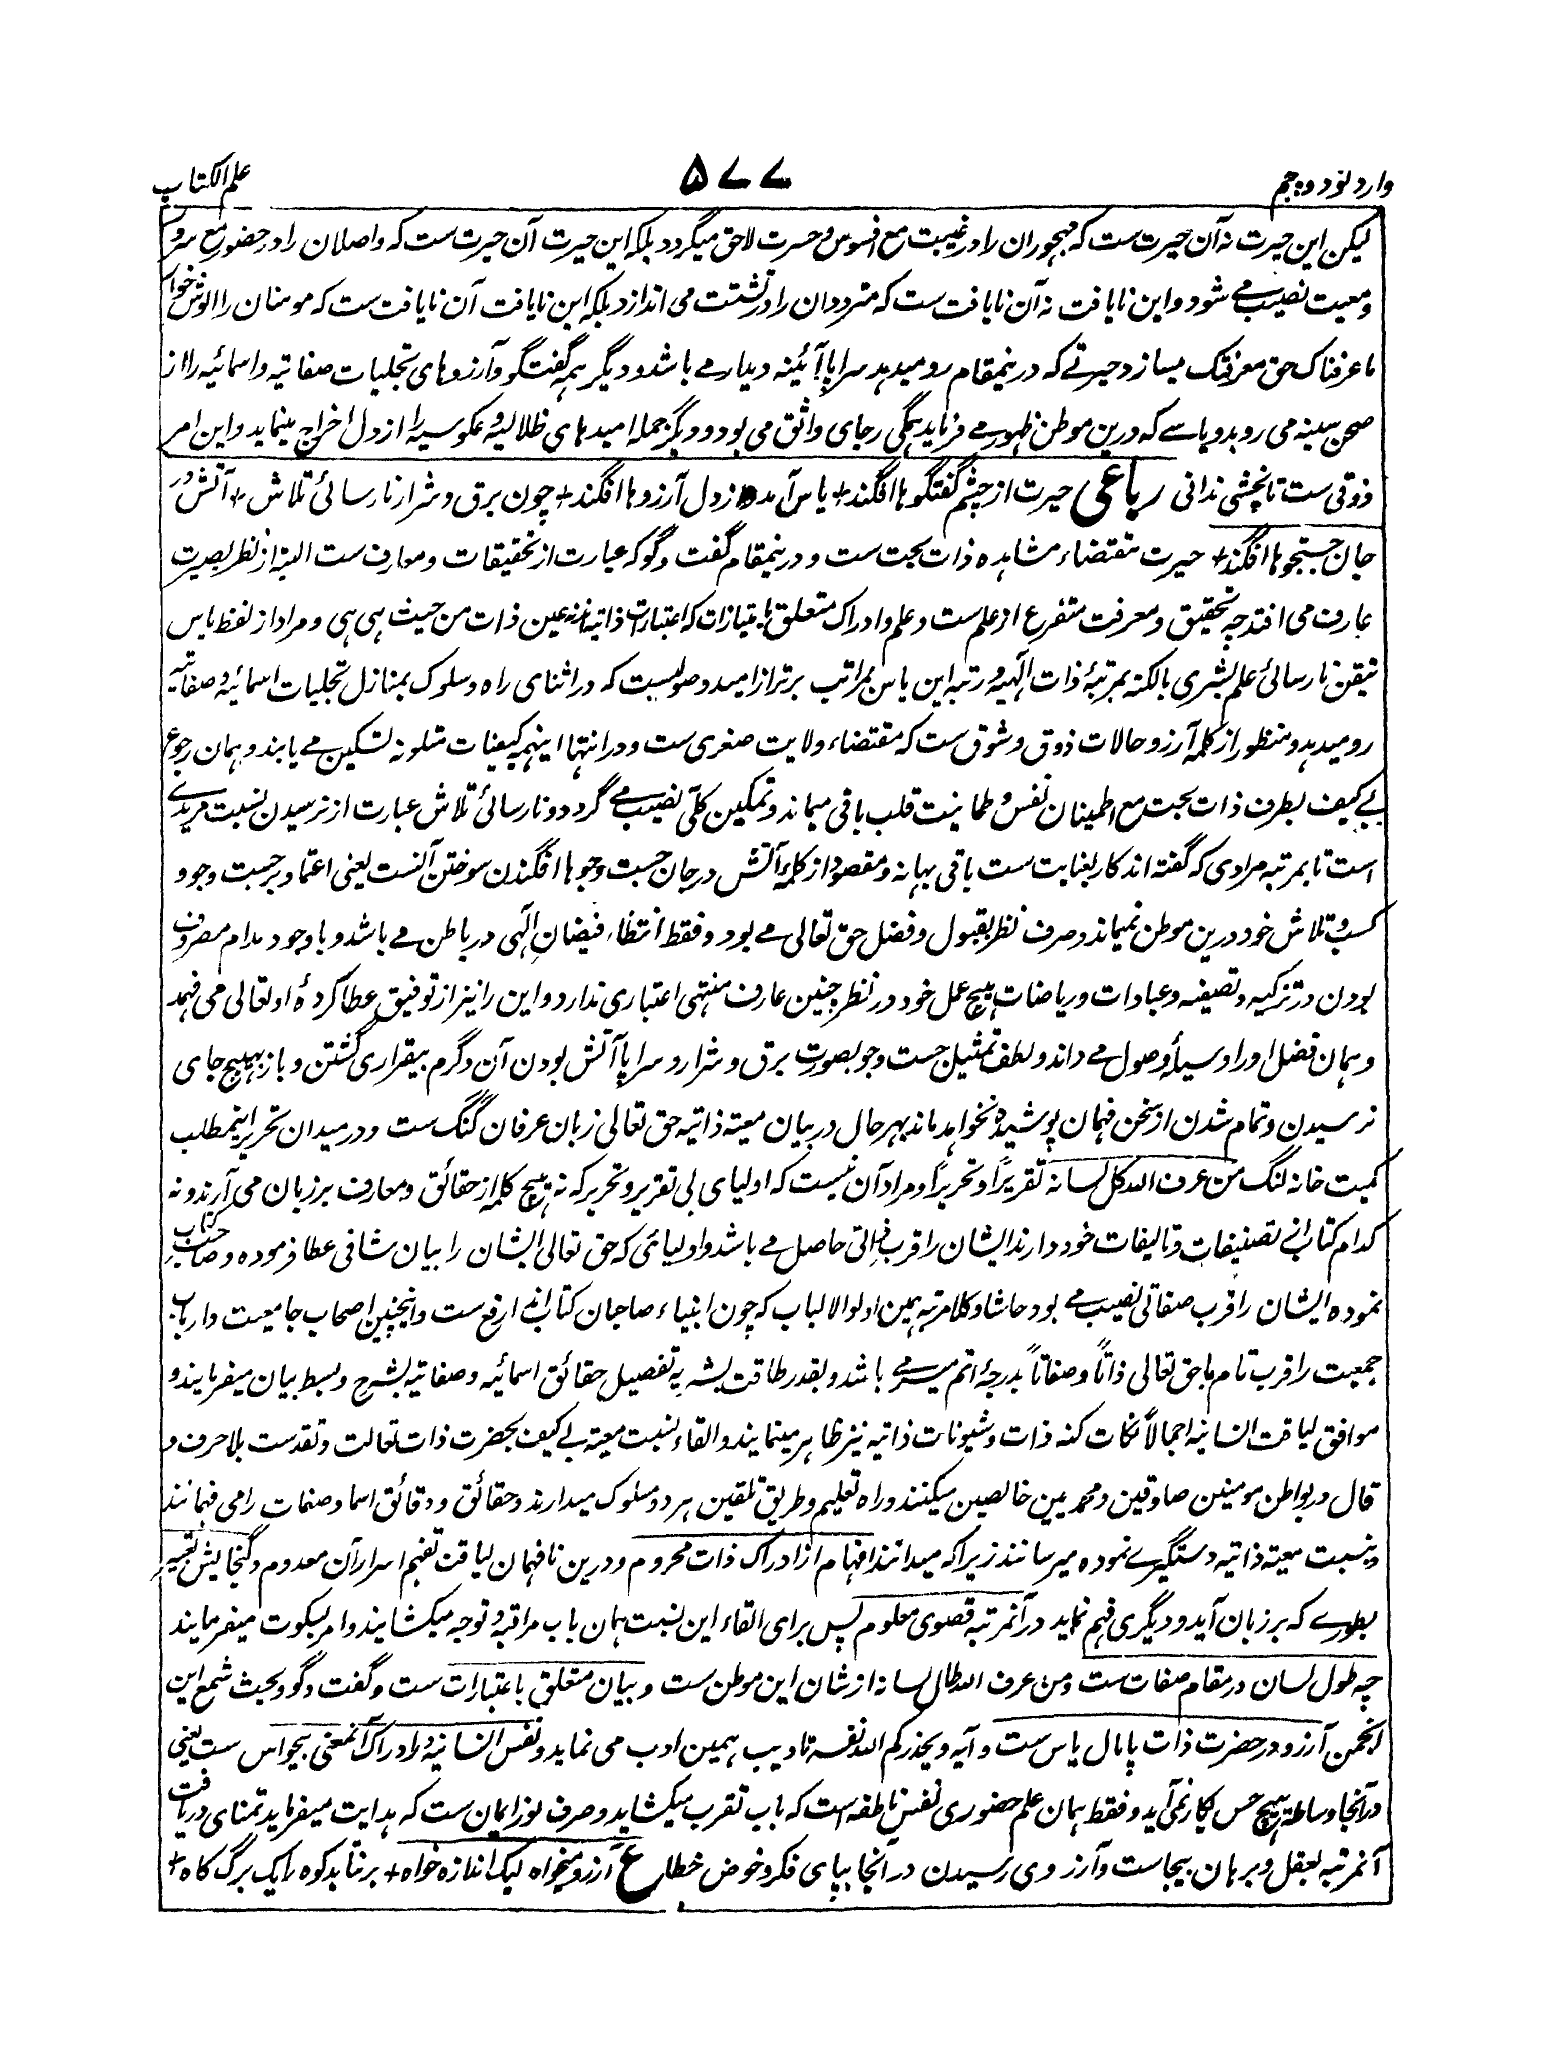 وارد نود و پنجم ۵۷۷ علم الکتاب
لیکن این حیرت نه آن حیرت ست که مهجوران را در غیبت مع افسوس و حسرت لاحق میگردد بلکه این حیرت آن حیرت ست که واصلان را در حضور مع سرور
و معیت نصیب مے شود و این نایافت نه آن نایافت ست که مترددان را در تشتت می اندازد بلکه این نایافت آن نایافت ست که مومنان را الوش خوان
ما عرفناک حق معرفتک میسازد حیرتے که درینمقام رو میدهد سراپا آئینه دیدار مے باشد و دیگر همه گفتگو و آرزوهای تجلیات صفاتیه و اسمائیه را از
صحن سینه می روبد و یاسے که درین موطن ظهور مے فرماید همگی رجای واثق می بود و دیگر جمله امیدهای ظلالیه و عکوسیه را از دل اخراج مینماید و این امر
ذوقی ست تا نچشی ندانی رباعی حیرت از چشم گفتگوها افگند + یاس آمد و از دل آرزوها افگند + چون برق و شرار نارسائی تلاش + آتش در
جان جستجوها افگند + حیرت مقتضاء مشاهده ذات بحت ست و درینمقام گفت و گو که عبارت از تحقیقات و معارف ست البته از نظر بصیرت
عارف می افتد چه تحقیق و معرفت متفرع از علم ست و علم و ادراک متعلق بامتیازات که اعتبارات ذاتیه اند نه عین ذات من حیث هی هی و مراد از لفظ یاس
تیقن نارسائی علم بشری بالکنه بمرتبهٔ ذات الٰهیه و رتبه این یاس بمراتب برتر از امید وصولیست که در اثنای راه و سلوک بمنازل تجلیات اسمائیه و صفاتیه
رو میدهد و منظور از کلمه آرزو حالات ذوق و شوق ست که مقتضاء ولایت صغری ست و در انتها اینهمه کیفیات متلونه تسکین مے یابند و همان رجوع
بے کیف بطرف ذات بحت مع اطمینان نفس و طمانیت قلب باقی میماند و تمکین کلّی نصیب مے گردد و نارسائی تلاش عبارت از نرسیدن نسبت مریدے
است تا بمرتبه مرادی که گفته اند کار بعنایت ست باقی بهانه و مقصود از کلمهٔ آتش در جان جست و جوها افگندن سوختن آنست یعنی اعتماد بر جست و جو و
کسب و تلاش خود درین موطن نمیماند و صرف نظر بقبول و فضل حق تعالی مے بود و فقط انتظار فیضان الٰهی در باطن مے باشد و با وجود مدام مصروف
بودن در تزکیه و تصفیه و عبادات و ریاضات هیچ عمل خود در نظر چنین عارف منتهی اعتباری ندارد و این را نیز از توفیق عطا کردهٔ او تعالی می فهمد
و همان فضل او را وسیلهٔ وصول مے داند و لطف تمثیل جست و جو بصورت برق و شرار و سراپا آتش بودن آن و گرم بیقراری گشتن و باز بهیچ جای
نرسیدن و تمام شدن از سخن فهمان پوشیده نخواهد ماند بهر حال در بیان معیته ذاتیه حق تعالی زبان عرفان گنگ ست و در میدان تحریر اینمطلب
کمیت خامه لنگ من عرف الله کل لسانه تقریراً و تحریراً و مراد آن نیست که اولیای بی تقریر و تحریر که نه هیچ کلمه از حقائق و معارف بر زبان می آرند و نه
کدام کتاب از تصنیفات و تالیفات خود دارند ایشان را قرب ذاتی حاصل مے باشد و اولیائی که حق تعالی ایشان را بیان شافی عطا فرموده و صاحب کتاب
نموده ایشان را قرب صفاتی نصیب مے بود حاشا و کلا مرتبه همین اولو الالباب که چون انبیاء صاحبان کتاب اند ارفع ست و اینچنین اصحاب جامعیت و ارباب
جمعیت را قرب تام با حق تعالی ذاتاً و صفاتاً بدرجهٔ اتم میسر مے باشد و بقدر طاقت بشریه تفصیل حقائق اسمائیه و صفاتیه بشرح و بسط بیان میفرمایند و
موافق لیاقت انسانیه اجمالاً نکات کنه ذات و شیونات ذاتیه نیز ظاهر مینمایند و القاء نسبت معیته بے کیف بحضرت ذات تعالت و تقدست بلا حرف و
قال در بواطن مومنین صادقین و محمدیین خالصین میکنند و راه تعلیم و طریق تلقین هر دو مسلوک میدارند و حقائق و دقائق اسما و صفات را می فهمانند
و بنسبت معیته ذاتیه دستگیرے نموده میرسانند زیرا که میدانند افهام از ادراک ذات محروم و درین نافهمان لیاقت تفهم اسرار آن معدوم و گنجایش تعبیر
بطورے که بر زبان آید و دیگری فهم نماید در آنمرتبه قصوی معلوم پس برای القاء این نسبت همان باب مراقبه و توجه میکشایند و امر بسکوت میفرمایند
چه طول لسان در مقام صفات ست و من عرف الله طال لسانه از شان این موطن ست و بیان متعلق باعتبارات ست و گفت و گو و بحث شمع این
انجمن آرزو در حضرت ذات پامال یاس ست و آیه و یحذرکم الله نفسه تادیب همین ادب می نماید و نفس انسانیه در ادراک آنمعنی بیحواس ست یعنی
در آنجا وساطة هیچ حس بکار نمی آید و فقط همان علم حضوری نفس ناطقه است که باب تقرب میکشاید و صرف نور ایمان ست که هدایت میفرماید تمنای دریافت
آنمرتبه بعقل و برهان بیجاست و آرزوی رسیدن در آنجا بپای فکر و خوض خطا ع آرزو میخواه لیک اندازه خواه + برنتابد کوه را یک برگ کاه +